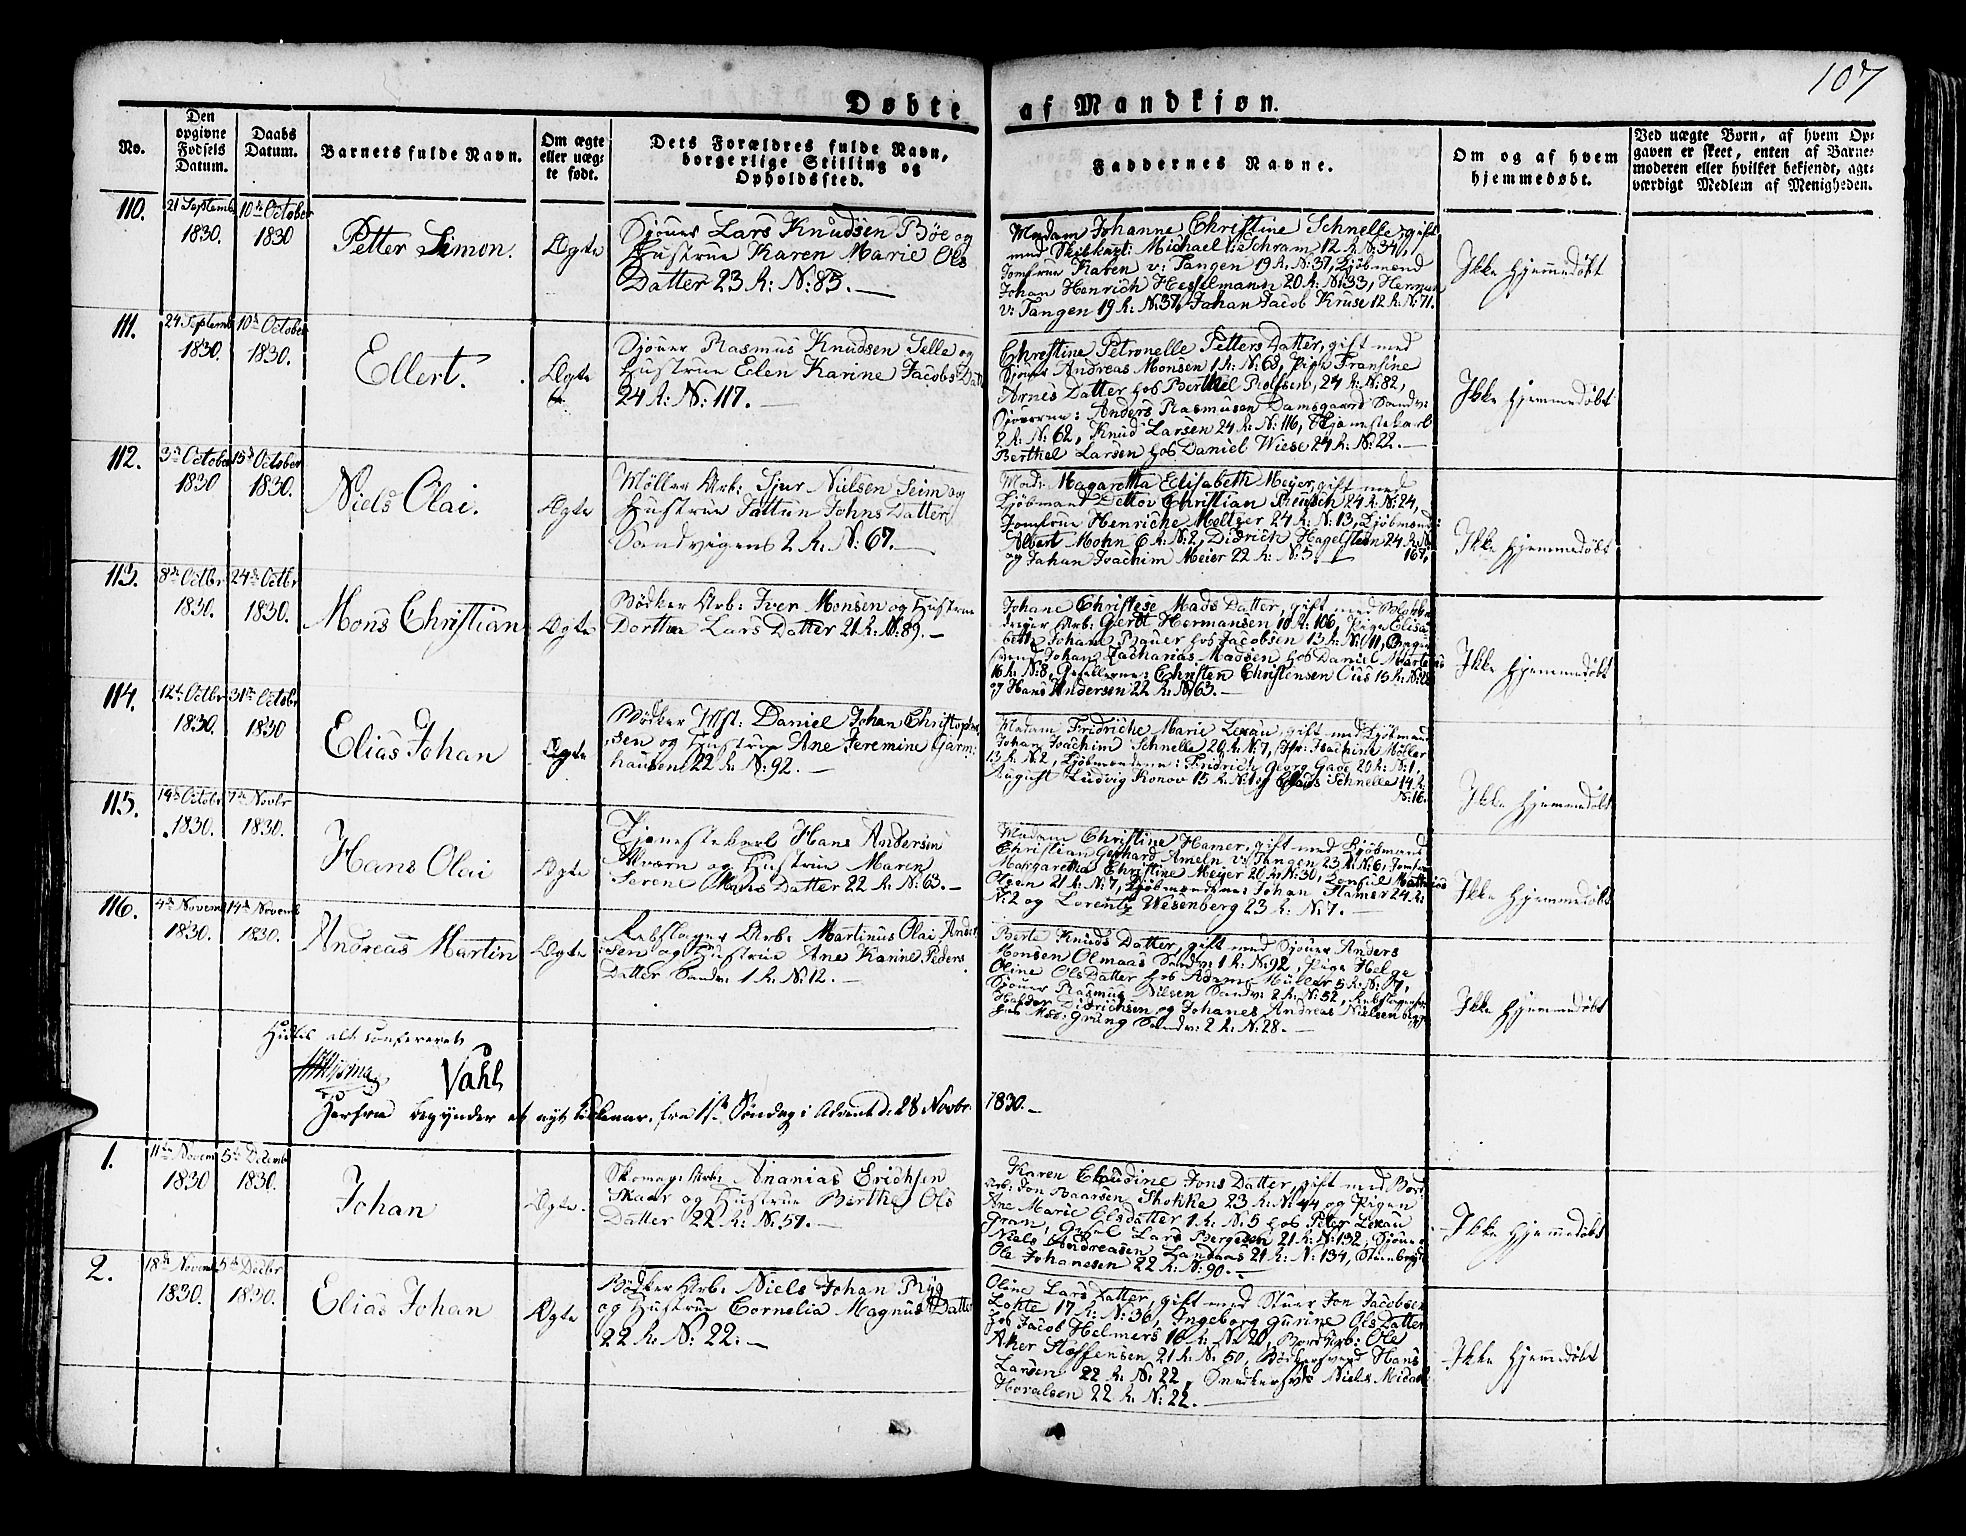 107
Døbte af Mandkjøn.
No.
Den opgivne Fødsels Datum.
Daabs Datum.
Barnets fulde Navn.
Om ægte eller uægte født.
Dets Forældres fulde Navn, borgerlige Stilling og Opholdssted.
Faddernes Navne.
Om og af hvem hjemmedøbt.
Ved uægte Børn, af hvem Op-
gaven er skeet, enten af Barne-
moderen eller hvilket bekjendt, agt-
værdigt Medlem af Menigheden.
110.
21 Septemb
1830.
10de October
1830
Petter Simon.
Ægte
Sjouer Lars Knudsen Bøe og
Hustrue Karen Marie Ols
Datter 23 R: N: 83.
Madam Johanne Christine Schnelle, gift
med Skibkapt: Michael Schram 12 R: N: 34,
Jomfrue Karen v: Tangen 19 R: N: 37, Kjøbmænd
Johan Henrich Hesselmann 20 R: N: 33, Herman
v: Tangen 19 R: N: 37, Johan Jacob Kruse 12 R: N: 71.
Ikke hjemmedøbt
111.
24 Septemb
1830.
10de October
1830.
Ellert.
Ægte
Sjouer Rasmus Knudsen Selle og
Hustrue Elen Karine Jacobs Dat
24 R: N: 117.
Christine Petronelle Petters Datter, gift med
Sjouer Andreas Monsen 1 R: N: 68, Pige Fransine
Arnes Datter hos Berthel Rolfsen, 24 R: N: 82,
Sjouerne: Anders Rasmusen Damsgaard Sandv:
2 R: N: 62, Knud Larsen 24 R: N: 116, Tjenestekarl
Berthel Larsen hos Daniel Wiese 24 R: N: 22.
Ikke hjemmedøbt
112.
3de October
1830
15de October
1830.
Niels Olai.
Ægte
Møller Arb: Sjur Nielsen Seim og
Hustrue Tattun Johns Datter
Sandvigens 2 R: N: 67.
Mad: Magaretta Elisabeth Meyer, gift med
Kjøbmand Dettov Christian 24 R: N: 24,
Jomfrue Henriche Meltzer 24 R: N: 13, Kjøbmænd:
Albert Mohn 6 R: N: 2, Didrich Hagelsteen 24 R: N:
og Johan Joachim Meier 22 R: N: 5. 167,
Ikke hjemmedøbt
113.
8de Octbr
1830.
24de Octbr
1830.
Mons Christian
Ægte
Bødker Arb: Iver Monsen og Hustrue
Dorthea Lars Datter 21 R: N: 89.
Johane Christese Mads Datter, gift med
Arb: Gerdt Hermansen 10 R: 106, Pige Elisa
beth Johane Bauer hos Jacobsen 13 R: N: 11,
svend Johan Zacharias Madsen hos Daniel Martens
16 R: N: 8, Christen Christensen 15 R: N: 28
og Hans Andersen 22 R: N: 63.
Ikke hjemmedøbt
114.
12de Octbr
1830.
31de October
1830
Elias Johan
Ægte
Bødker Mst: Daniel Johan Christoph
sen og Hustrue Ane Jeremine Garm
hausen 22 R: N: 92.
Madam Fridriche Marie Lexau, gift med Kjøbmand
Johan Joachim Schnelle 20 R: N: 7, Joachine Møller
13 R: N: 2, Kjøbmændene: Fridrich Georg Gade 20 R: N: 1,
August Ludvig Konow 15 R: N: 1 og Schnelle 14 R:
N: 16.
Ikke hjemmedøbt
115.
19de Octobr
1830.
7de Novbr
1830.
Hans Olai
Ægte
Tjenestekarl Hans Andersen
og Hustrue Maren
Serene Hans Datter 22 R: N: 63.
Madam Christine Hamer, gift med Kjøbmand
Christian Gerhard Ameln v: Tangen 23 R: N: 6, Jomfrue
Margaretha Christine Meyer 20 R: N: 30, Consul Mathias
Olsen 21 R: N: 7, Kjøbmændene: Johan Stamer 24 R:
N: 2 og Lorentz Wesenberg 23 R: N: 7.
Ikke hjemmedøbt
116.
4de Novemb
1830.
14de Novemb
1830.
Andreas Martin
Ægte
Rebslager Arb: Martinus Olai Ander
sen og Hustrue Ane Hanne Peders
Datter Sandv: 1 R: N: 12.
Berte Knuds Datter, gift med Sjouer Anders
Monsen Olmaas Sandv: 1 R: N: 92, Pige Helge
Oline Ols Datter hos Adam Müller 5 R: N: 17,
Sjouer Rasmus Nilsen Sandv: 2 R: N: 52, Rebslager
Halder Didrichsen og Johanes Andreas Nielsen begge
hos Mad: Grung Sandv: 2 R: N: 28.
Ikke hjemmedøbt
Hidtil alt confereret
Vahl
Herfra begynder et nyt Kirkeaar, fra 1ste Søndag i Advent d: 28 Novbr: 1830.
1.
11te Novem
1830
5te Decemb
1830.
Johan
Ægte.
Skomag: Arb: Ananias Erichsen
Skaar og Hustrue Berthe Ols
Datter 22 R: N: 57.
Karen Chrudine Jons Datter, gift med Bord
Arb: Jon Baarsen Skokke 23 R: N: 44 og Pigen
Ane Marie Olsdatter 1 R: N: 5 hos Peter Lexau
Gran, Lars Bergesen 21 R: N: 132, Sjouer
Niels Andreasen Landaas 21 R: N: 134,
Ole Johanesen 22 R: N: 90.
Ikke hjemmedøbt
2.
18de Novemb
1830.
5te Decbr
1830.
Elias Johan
Ægte
Bødker Arb: Niels Johan Ryg
og Hustrue Cornelia Magnus Datter
22 R: N: 22.
Oline Lars Datter, gift med Stuer Jon Jacobsen
Lofte 17 R: N: 36, Ingeborg Gurine Ols Datter
hos Jacob Helmers 16 R: N: 20, Bord Arb: Ole
Aker Stoffensen 21 R: N: 50, Bødkersvend Hans
Larsen 22 R: N: 22, Snedkersvd Niels
Horalsen 22 R: N: 22.
Ikke hjemmedøbt